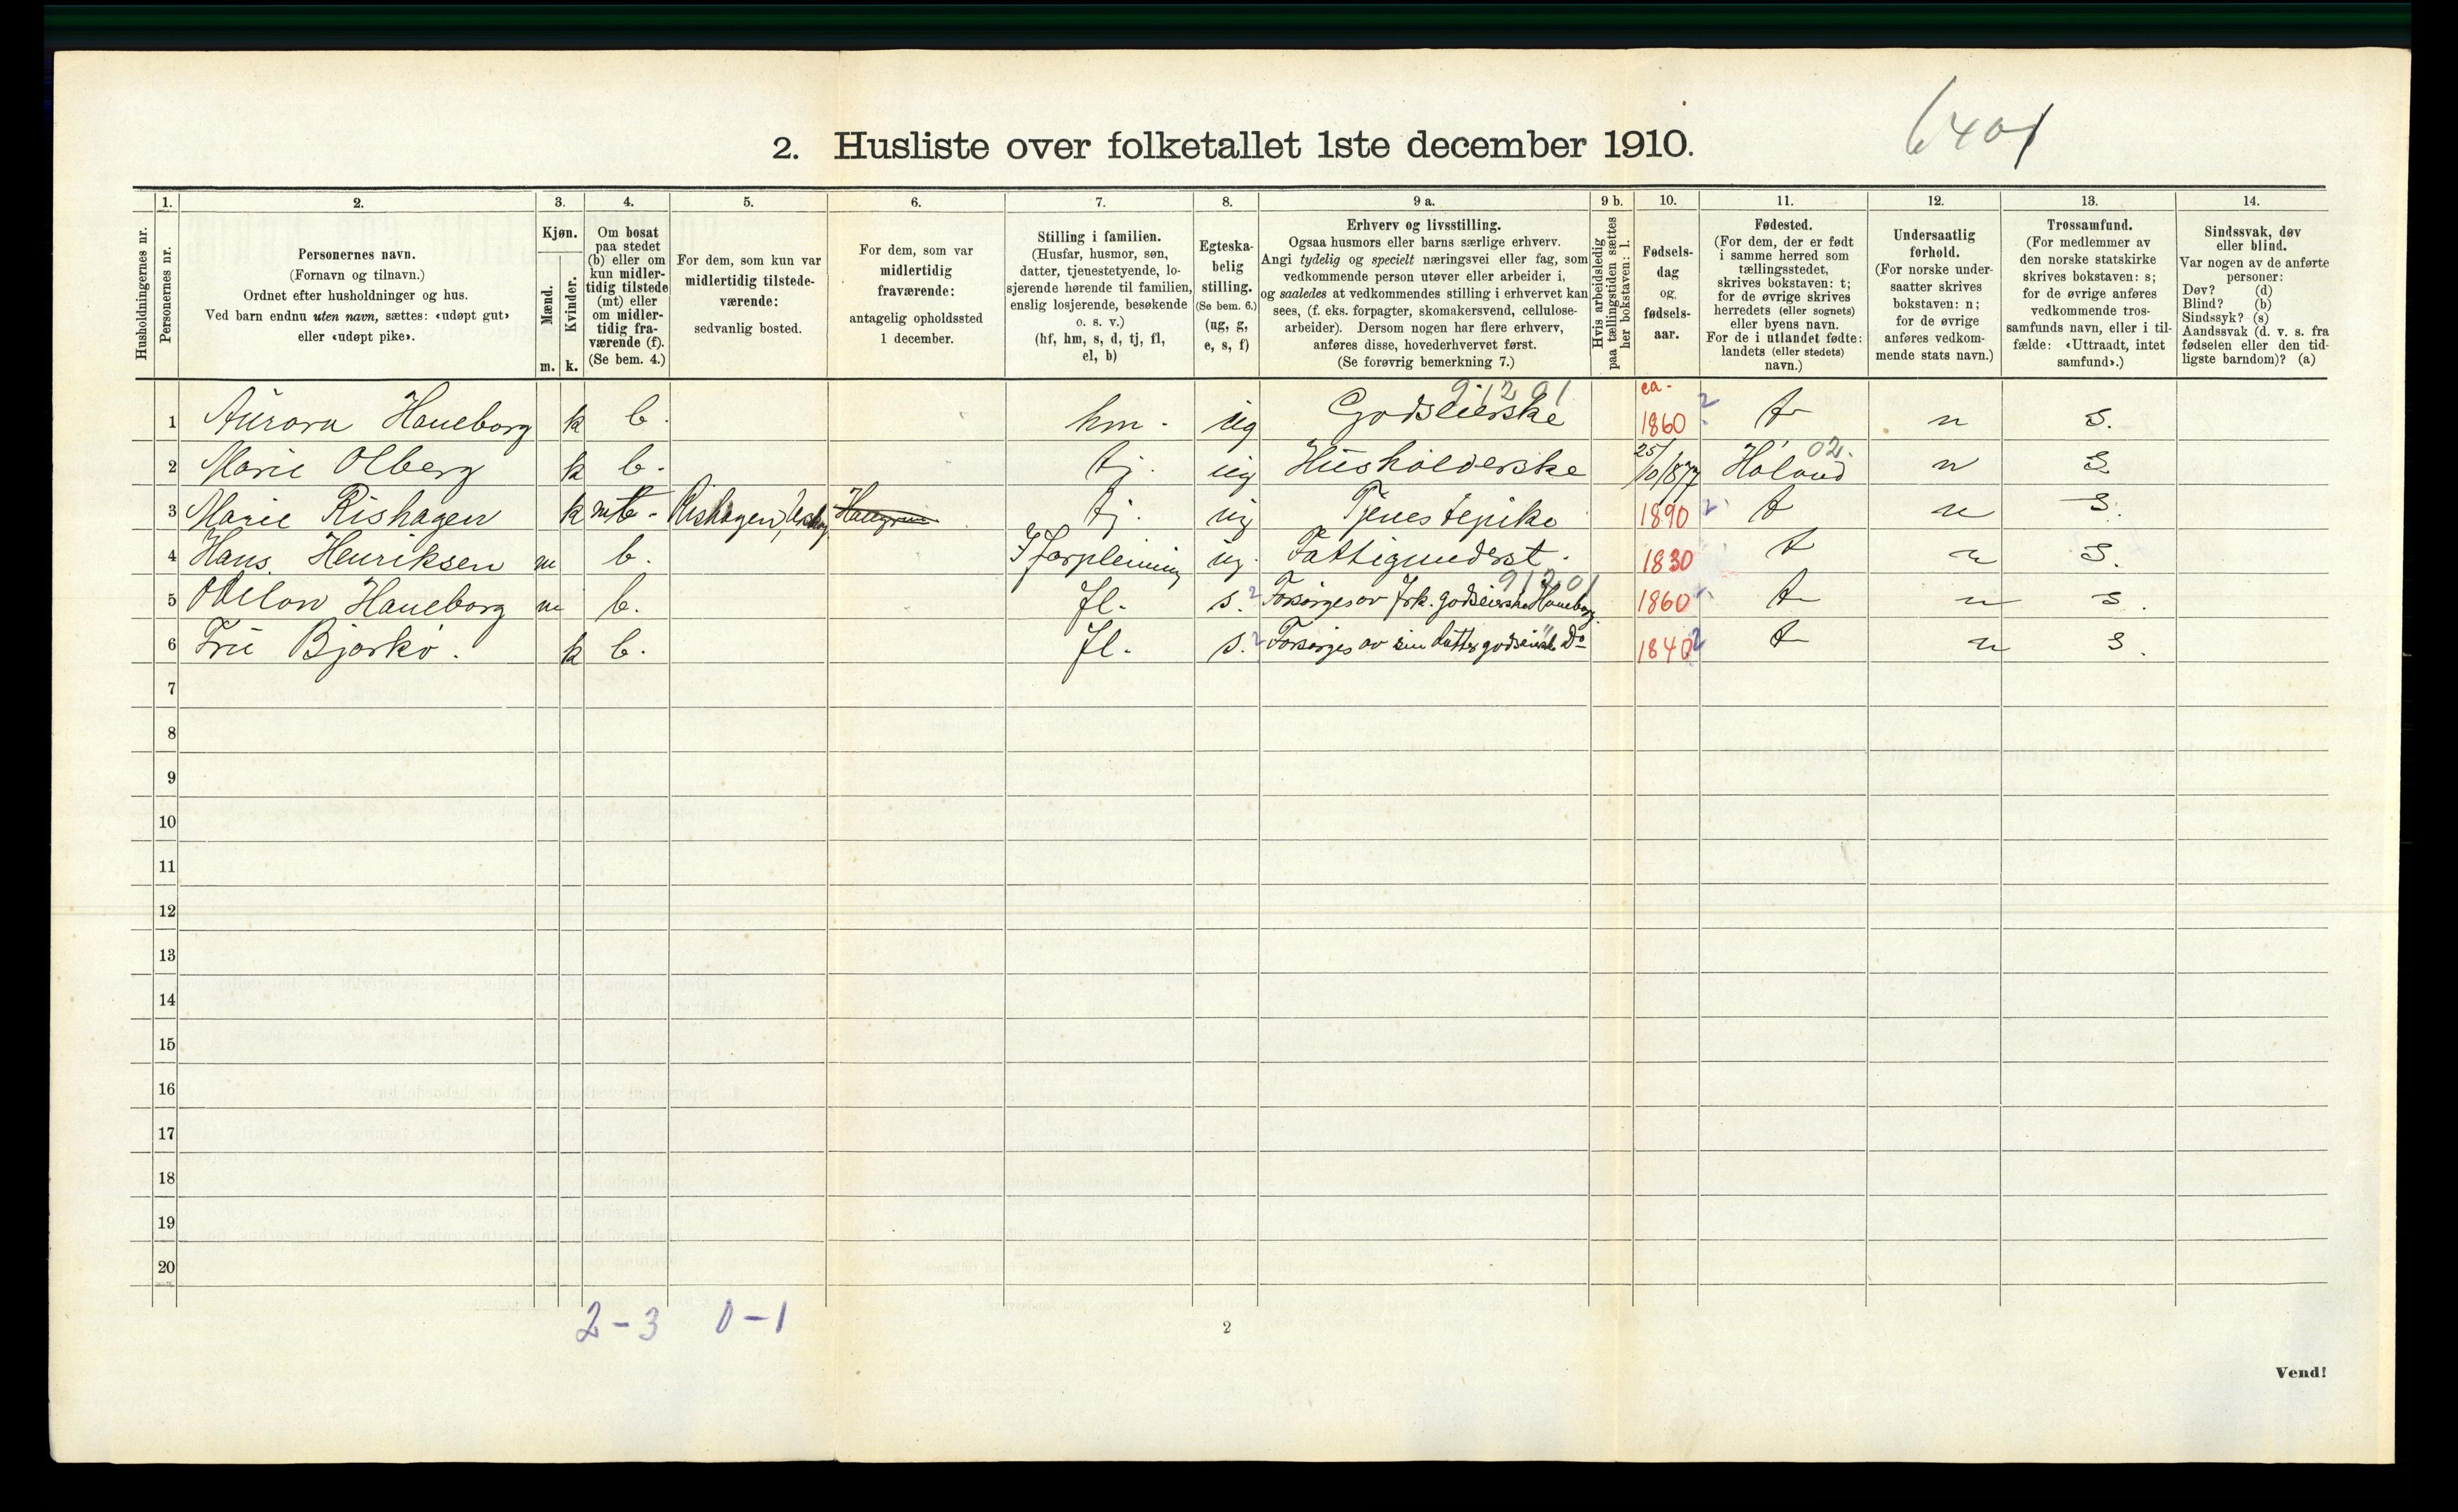 6401
2. Husliste over folketallet 1ste december 1910.
Husholdningernes nr.
1.
Personernes nr.
2.
Personernes navn.
(Fornavn og tilnavn.)
Ordnet efter husholdninger og hus.
Ved barn endnu uten navn, sættes: «udøpt gut»
eller «udøpt pike».
3.
Kjøn.
Mænd.
Kvinder.
m. k.
4.
Om bosat
paa stedet
(b) eller om
kun midler-
tidig tilstede
(mt) eller
om midler-
tidig fra-
værende (f).
(Se bem. 4.)
5.
For dem, som kun var
midlertidig tilstede-
værende:
sedvanlig bosted.
6.
For dem, som var
midlertidig
fraværende:
antagelig opholdssted
1 december.
7.
Stilling i familien.
(Husfar, husmor, søn,
datter, tjenestetyende, lo-
sjerende hørende til familien,
enslig losjerende, besøkende
o. s. v.)
(hf, hm, s, d, tj, fl,
el, b)
8.
Egteska-
belig
stilling.
(Se bem. 6.)
(ug, g,
e, s, f)
9 a.
Erhverv og livsstilling.
Ogsaa husmors eller barns særlige erhverv.
Angi tydelig og specielt næringsvei eller fag, som
vedkommende person utøver eller arbeider i,
og saaledes at vedkommendes stilling i erhvervet kan
sees, (f. eks. forpagter, skomakersvend, cellulose-
arbeider). Dersom nogen har flere erhverv,
anføres disse, hovederhvervet først.
(Se forøvrig bemerkning 7.)
9 b.
Hvis arbeidsledig
paa tællingstiden sættes
her bokstaven: l.
10.
Fødsels-
dag
og
fødsels-
aar.
11.
Fødested.
(For dem, der er født
i samme herred som
tællingsstedet,
skrives bokstaven: t;
for de øvrige skrives
herredets (eller sognets)
eller byens navn.
For de i utlandet fødte:
landets (eller stedets)
navn.)
12.
Undersaatlig
forhold.
(For norske under-
saatter skrives
bokstaven: n;
for de øvrige
anføres vedkom-
mende stats navn.)
13.
Trossamfund.
(For medlemmer av
den norske statskirke
skrives bokstaven: s;
for de øvrige anføres
vedkommende tros-
samfunds navn, eller i til-
fælde: «Uttraadt, intet
samfund».)
14.
Sindssvak, døv
eller blind.
Var nogen av de anførte
personer:
Døv? (d)
Blind? (b)
Sindssyk? (s)
Aandssvak (d. v. s. fra
fødselen eller den tid-
ligste barndom)? (a)
91201 ca.
1 Aurora Haneborg k b. hm. ug Godseierske 1860 2 t n s.
2 Marie Olberg k b. tj. ug Husholderske 25/10 1877 Høland 02. n s.
3 Marie Rishagen k mt. Rishagen, tj. ug Tjenestepike 1890 2 t n s.
4 Hans Henriksen m b. I forpleining ug. Fattigunderst. 1830 t n s.
91201
5 Odelon Haneborg m b. fl. s. 2 Forsørges av frk. godseierske Haneborg. 1860 t n s.
6 Fru Bjørkø. k b. fl. s. 2 Forsørges av sin datter godseierske Do 1840 2 t n s.
7
8
9
10
11
12
13
14
15
16
17
18
19
20
2-3 0-1
2
Vend!